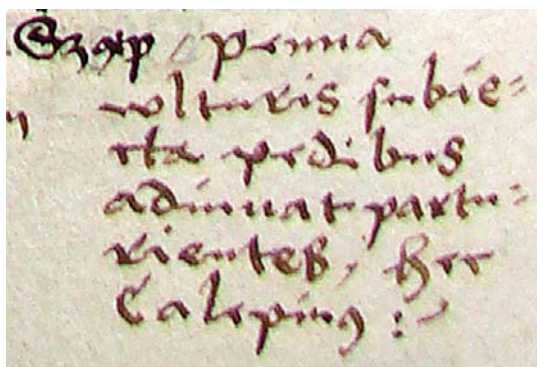 penna
wlturis subie-
cta pedibus
adiuuat partu-
rientes, hec
Calepinus :